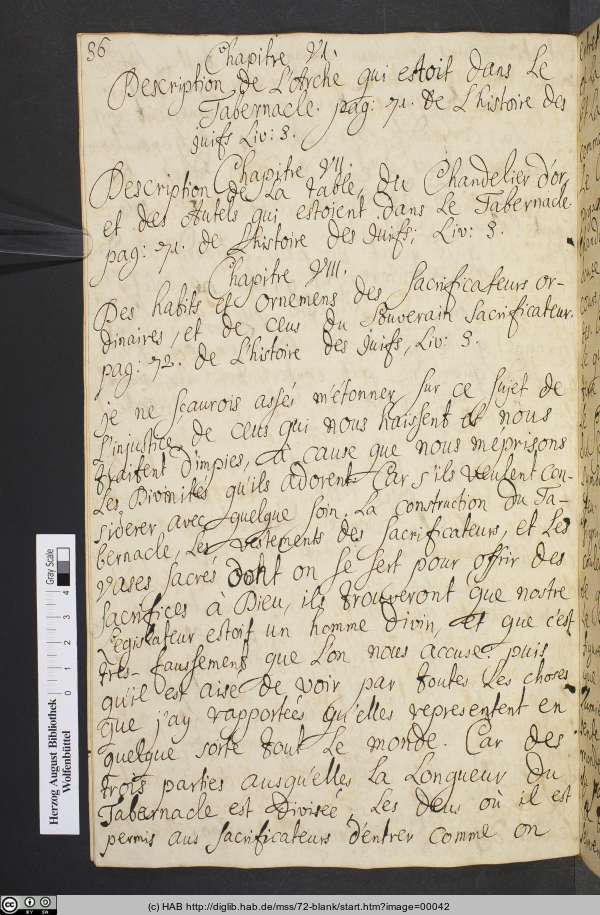 36
Chapitre VI.
Description de L'Arche qui estoit dans Le
Tabernacle. pag: 71. de L'histoire des
Juifs Liv: 3.
Chapitre VII.
Description de La table, du Chandelier d'or,
et des Autels qui estoient dans Le Tabernacle.
pag: 71. de L'histoire des Juifs, Liv: 3.
Chapitre VIII.
Des habits et ornemens des Sacrificateurs or-
dinaires, et de ceus du Souverain Sacrificateur.
pag: 72. de L'histoire des Juifs, Liv: 3.
je ne scaurois assés m'étonner sur ce sujet de
L'injustice de ceus qui nous haïssent et nous
traitent d'impies, à cause que nous méprisons
Les Divinités qu'ils adorent. Car s'ils veulent con-
siderer avec quelque soin La construction du Ta-
bernacle, Les vêtements des Sacrificateurs, et Les
vases sacrés dont on se sert pour offrir des
sacrifices à Dieu, ils trouveront que nostre
Legislateur estoit un homme divin, et que c'est
tres-faussement que L'on nous accuse: puis
qu'il est aise de voir par toutes Les choses
que j'ay rapportées qu'elles representent en
quelque sorte tout Le monde. Car des
trois parties ausqu'elles La Longueur du
Tabernacle est divisée, Les deus où il est
permis aus Sacrificateurs d'entrer comme on
Herzog August Bibliothek
Wolfenbüttel
0 1 2 3 4
Gray Scale
(c) HAB http://diglib.hab.de/mss/72-blank/start.htm?image=00042